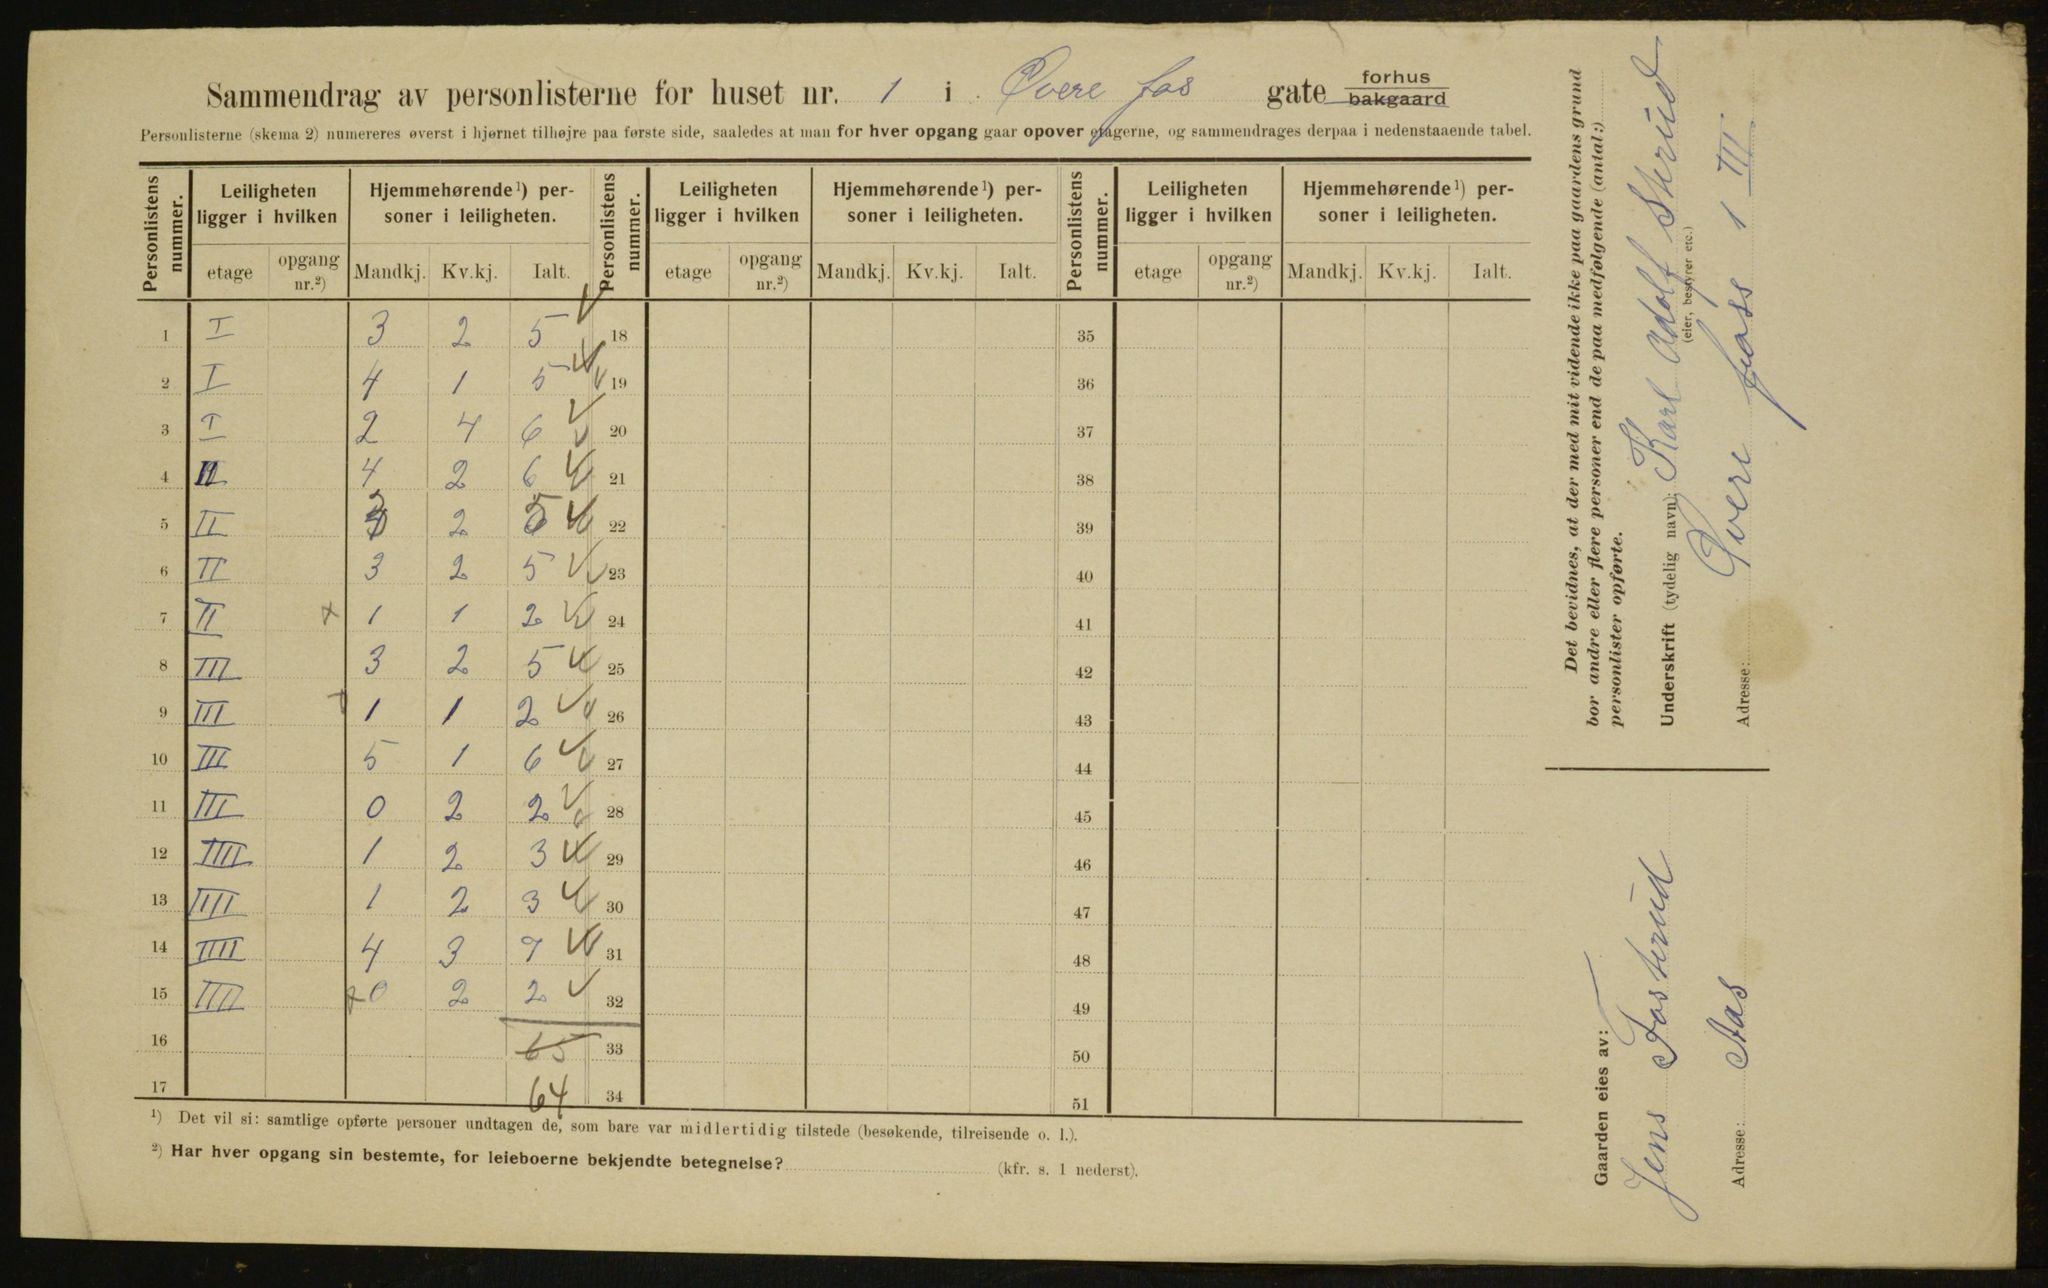 Sammendrag av personlisterne for huset nr. 1 i Øvere fos gate forhus bakgaard
Personlisterne (skema 2) numereres øverst i hjørnet tilhøjre paa første side, saaledes at man for hver opgang gaar opover etagerne, og sammendrages derpaa i nedenstaaende tabel.
Personlistens nummer. Leiligheten ligger i hvilken Hjemmehørende¹) personer i leiligheten. Personlistens nummer. Leiligheten ligger i hvilken Hjemmehørende¹) personer i leiligheten. Personlistens nummer. Leiligheten ligger i hvilken Hjemmehørende¹) personer i leiligheten.
etage opgang nr.²) Mandkj. Kv.kj. Ialt. etage opgang nr.²) Mandkj. Kv.kj. Ialt. etage opgang nr.²) Mandkj. Kv.kj. Ialt.
1 I 3 2 5 18 35
2 I 4 1 5 19 36
3 I 2 4 6 20 37
4 II 4 2 6 21 38
5 II 3 2 5 22 39
6 II 3 2 5 23 40
7 II 1 1 2 24 41
8 III 3 2 5 25 42
9 III 1 1 2 26 43
10 III 5 1 6 27 44
11 III 0 2 2 28 45
12 IIII 1 2 3 29 46
13 IIII 1 2 3 30 47
14 IIII 4 3 7 31 48
15 IIII 0 2 2 32 49
16 65 33 50
17 64 34 51
¹) Det vil si: samtlige opførte personer undtagen de, som bare var midlertidig tilstede (besøkende, tilreisende o. l.).
²) Har hver opgang sin bestemte, for leieboerne bekjendte betegnelse? (kfr. s. 1 nederst).
Det bevidnes, at der med mit vidende ikke paa gaardens grund
bor andre eller flere personer end de paa medfølgende (antal:)
personlister opførte.
Underskrift (tydelig navn) Karl Adolf Skrud
(eier, bestyrer etc.)
Adresse: Øvere foss 1 III
Gaarden eies av:
Jens Fosterud
Adresse: Aas